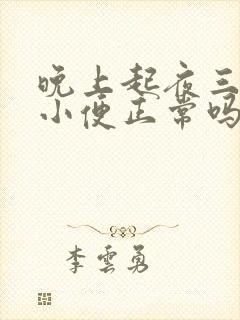 晚上起夜三
小便正常吗
李雲勇